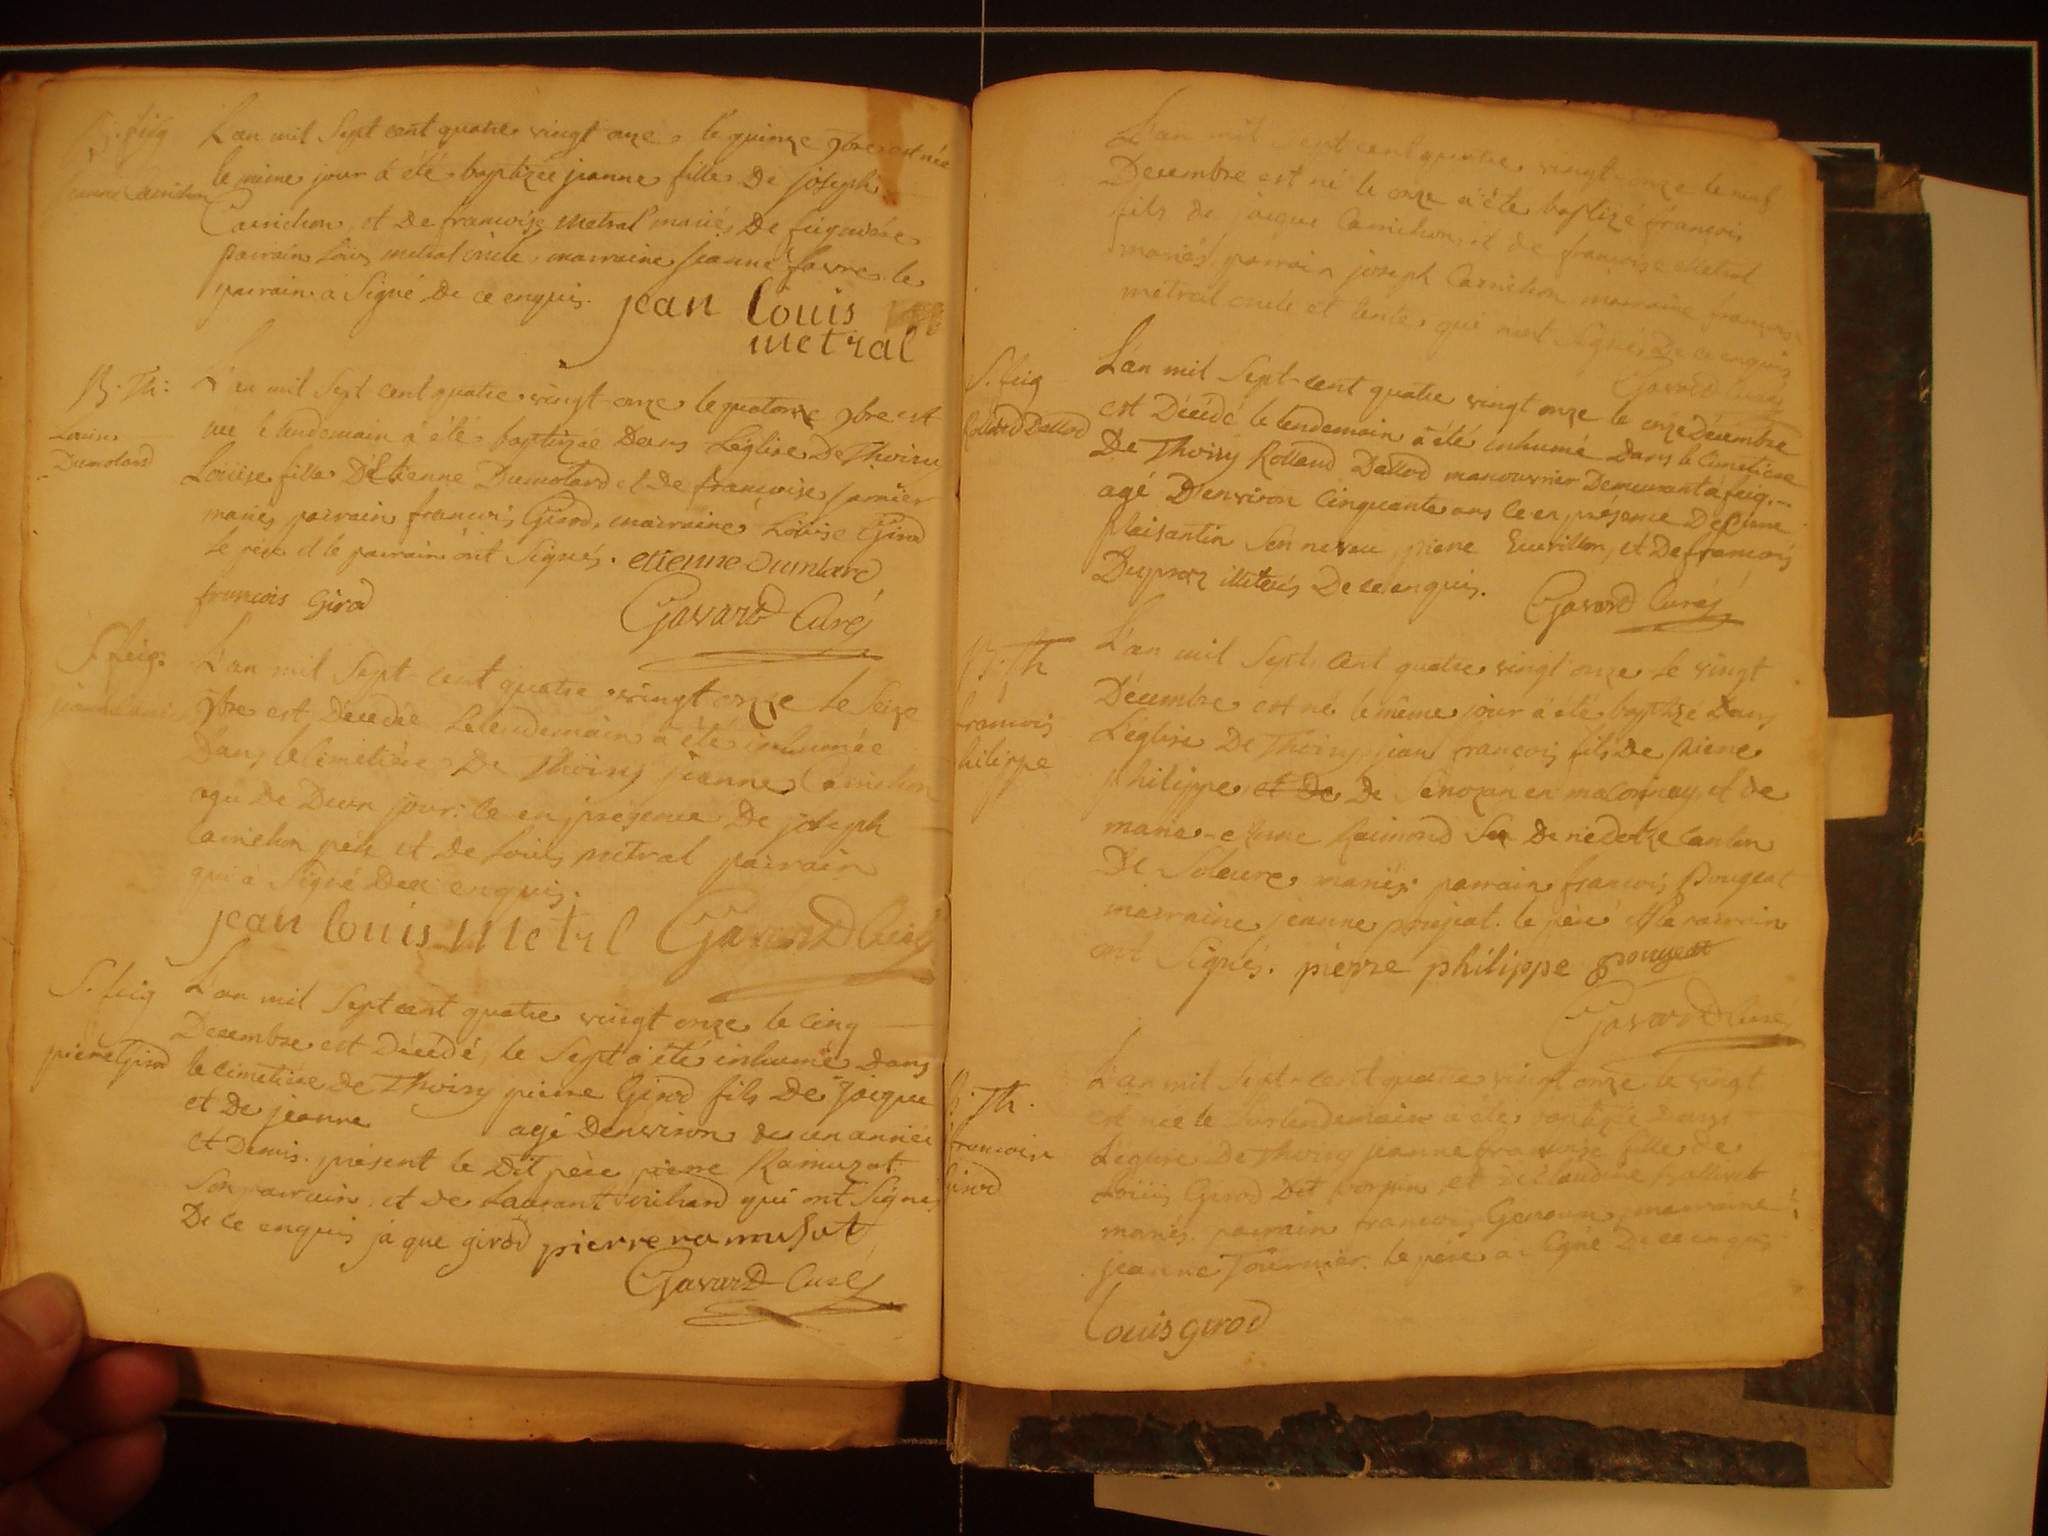 B. feig
Jeanne Carrichon
L'an mil Sept cent quatre vingt onze le quinze 9bre est née
le même jour à été baptizée jeanne fille De joseph
Carrichon et De francoise metral mariés De feigieres
parrain Loüis metral oncle, marraine jeanne favre le
parrain à Signé De ce enquis. jean Louis
metral
B. Th:
Louise
Dumolard
L'an mil Sept cent quatre vingt onze le quatorze 9bre est
née le lendemain à été baptizée Dans L'église De Thoiry
Loüise fille D'Etienne Dumolard et De francoise jarnier
mariés parrain francois Girod, marraine Loüise Girod
le père et le parrain ont Signés. etienne Dumlard
francois Girod Gavard Curé
S. feig:
L'an mil Sept cent quatre vingt onze le Seize
9bre est Décedée Le lendemain à été inhumée
Dans le Cimetière De Thoiry jeanne Carrichon
agée De Deux jour: ce en présence De joseph
Carrichon père et de Loüis metral parrain
qui à Signé De ce enquis.
jean louis metrl Gavard Curé
S. feig
pierre Girod
L'an mil Sept cent quatre vingt onze le Cinq
Decembre est Décédé, le Sept à été inhumé Dans
le cimetière De Thoiry pierre Girod fils De Jaique
et De jeanne agé Denviron de un année
et Demis. présent le Dit père pierre Ramuzat
Son parrain, et de Laurant Vuichard qui ont Signé
De ce enquis jà que girod pierre ramusat
Gavard Curé
L'an mil Sept cent quatre vingt onze le neuf
Decembre est né le onze à été baptizé francois
fils de jaique Carrichon et de francoise metral
mariés parrain joseph Carrichon marraine francoise
métral oncle et tente, qui n'ont Signés De ce enquis
Gavard Curé
S. feig
Rolland Dallod
L'an mil Sept-cent quatre vingt onze le onze Decembre
est Décédé le lendemain à été inhumé Dans le Cimetiere
De Thoiry Rolland Dallod manouvrier Demeurant à feig.
agé D'environ Cinquante ans ce en présence De
plaisantin Son neveu, pierre Querillon, et De francois
Duproz illiterés De ce enquis. Gavard Curé
B. Th
francois
hilippe
L'an mil Sept cent quatre vingt onze Le vingt
Décembre est né le même jour à été baptizé Dans
L'église De Thoiry jean francois fils De pierre
philippe et De De Senozan en maconnay, et de
marie Raimond De nederke Canton
De Soleure mariés. parrain francois Pougeat
marraine jeanne poujeat. le père et le parrain
ont Signés. pierre philippe pougeat
Gavard Curé
B. Th.
francoise
Girod
L'an mil Sept-cent quatre vingt onze le vingt
est née le Surlendemain à été baptizée Dans
L'église De Thoiry jeanne francoise fille de
Loüis Girod Dit et De Claudine
mariés parrain francois marraine
jeanne Tournier. le père a Signé De ce enquis
Louis girod